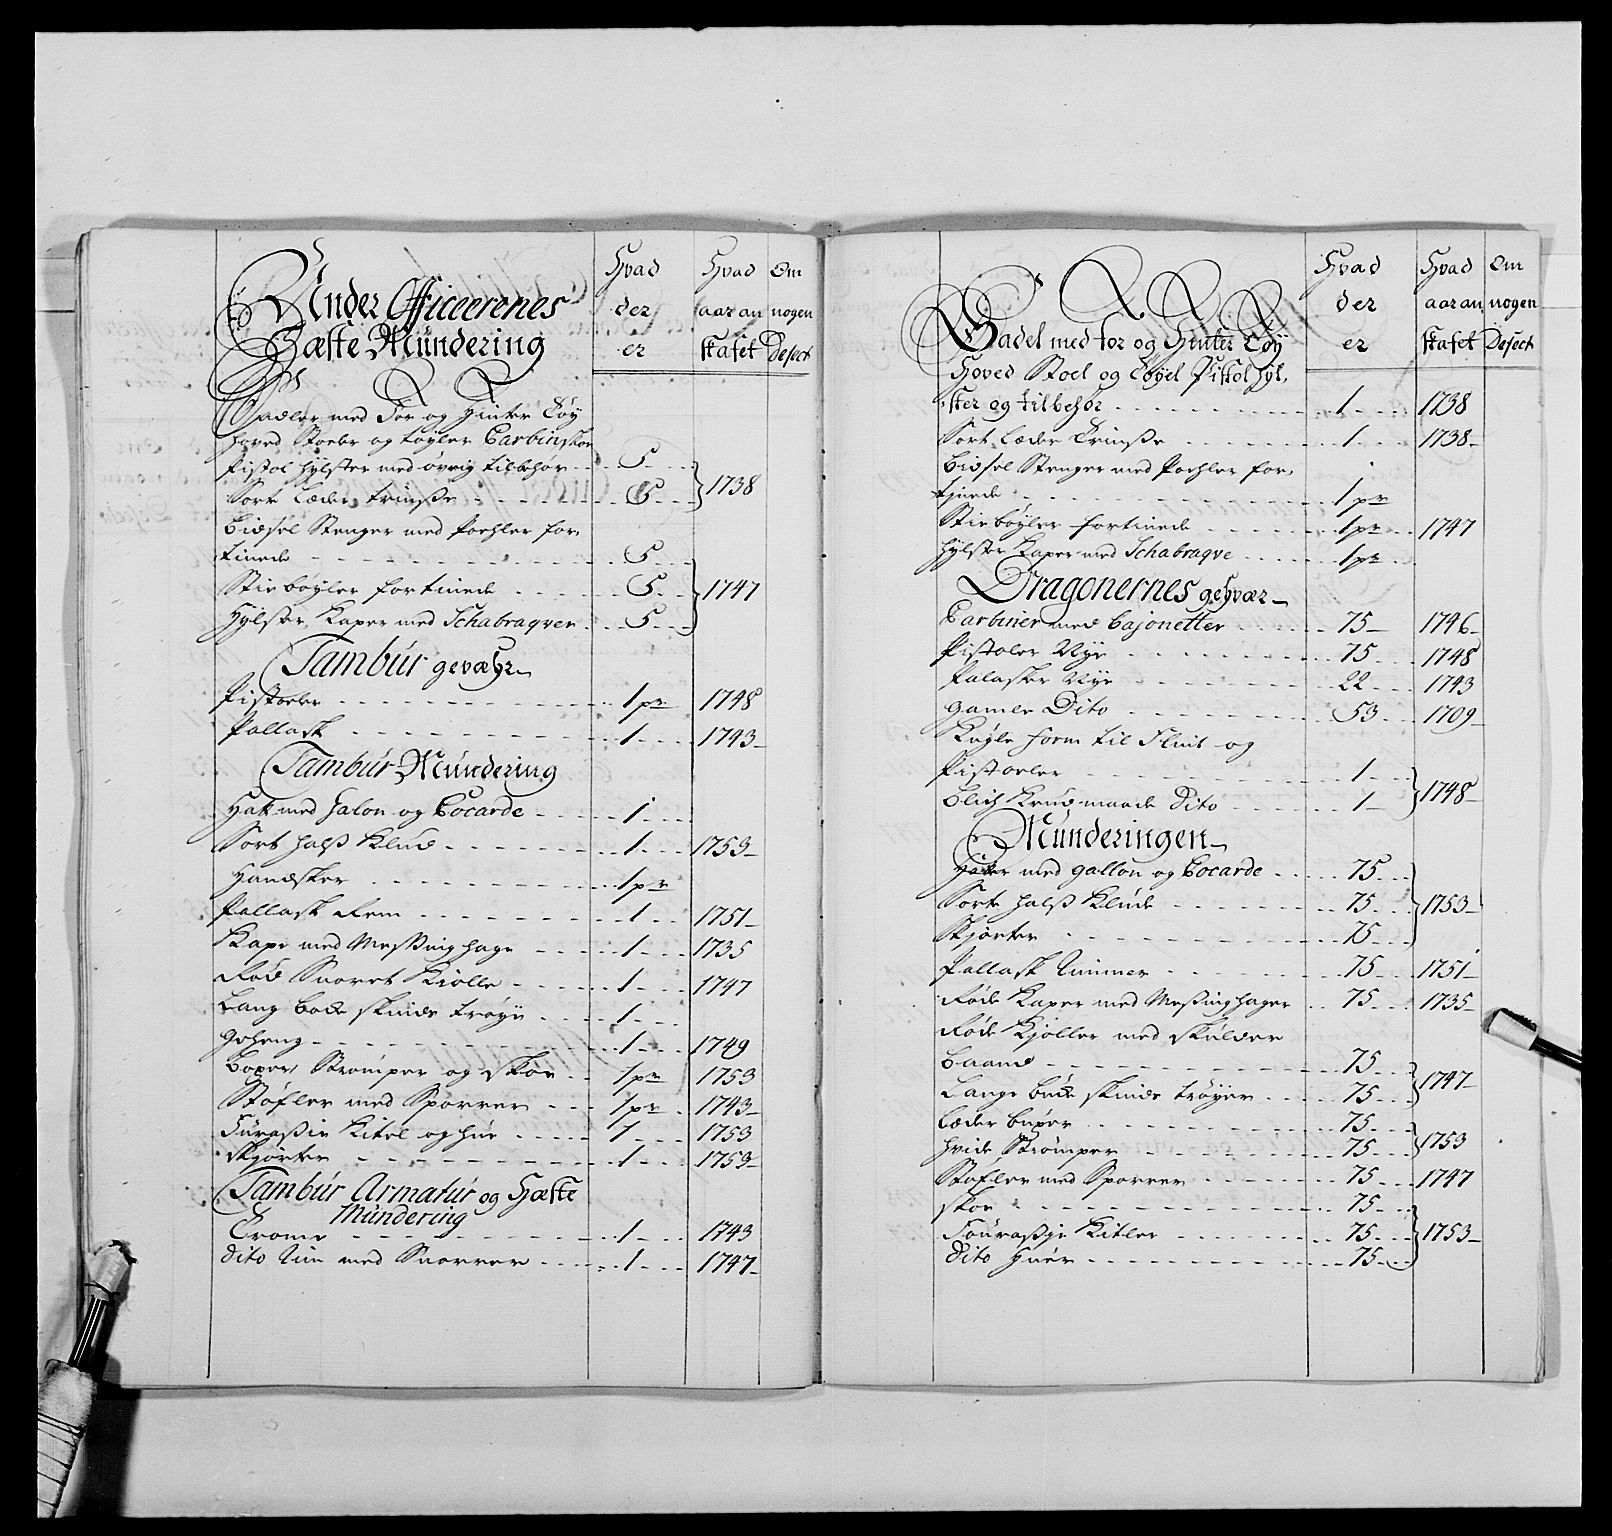 Under Officerenes
Hæste Mundering
Hvad der er
Hvad aar an skafet
Om nogen Defect
Sadler med For og Hinter Tøy
hoved Stoeler og tøyler Carbinskoe
Pistol Hylster med øvrig tilbehør 5
Sort Læder trinsse 5 1738
Bidsel Stenger med Pochler for=
tinede 5
Stie bøyler fortinede 5 1747
Hylster Kaper med Schabraqver 5
Tambúr gevæhr
Pistoeler 1 pr 1748
Pallask 1 1743
Tambúr Múndering
Hat med galon og Cocarde 1
Sort halss Klud 1 1753
Handsker 1 pr
Pallask Rem 1 1751
Kape med Messing hage 1 1735
Rød Snoret Kiolle 1 1747
Lang bocke skinds trøye 1
Geheng 1 1749
Boxer, Strømper og skoe 1 pr 1753
Støfler med Sporrer 1 pr 1743
Furassie Kitel og hue 1 1753
Skjorter 1 1753
Tambúr Armatúr og Hæste
Múndering
Tromme 1 1743
Dito Rim med Snorrer 1 1747
Hvad der er
Hvad aar an skafet
Om nogen Defect
Sadel med for og Hinter Tøy
Hoved Stoel og Tøyel Pistol Hyl,
ster og tilbehør 1 1738
Sort Læder Trinsse 1 1738
Bidsel Stenger med Pochler for,
tinede 1 pr
Stie bøyler fortinede 1 pr 1747
Hylster Kaper med Schabraqve 1 pr
Dragonernes gehvær
Carbiner med Bajonetter 75 1746
Pistoler Nye 75 1748
Palasker Nye 22 1743
Gamle Dito 53 1709
Kugle form til Flint og
Pistoeler 1
Blich Krud maade Dito 1 1748
Munderingen
Hatter med gallon og Cocarde 75
Sorte halss Klude 75 1753
Skjorter 75
Pallask Rimmer 75 1751
Røde Kaper med Messing hager 75 1735
Røde Kjoller med skulder
baand 75
Lange bucke skinds trøyer 75 1747
Læder buxer 75
hvide Strømper 75 1753
Støfler med Sporrer 75 1747
skoe 75
Fouragje Kitler 75 1753
Dito Huer 75